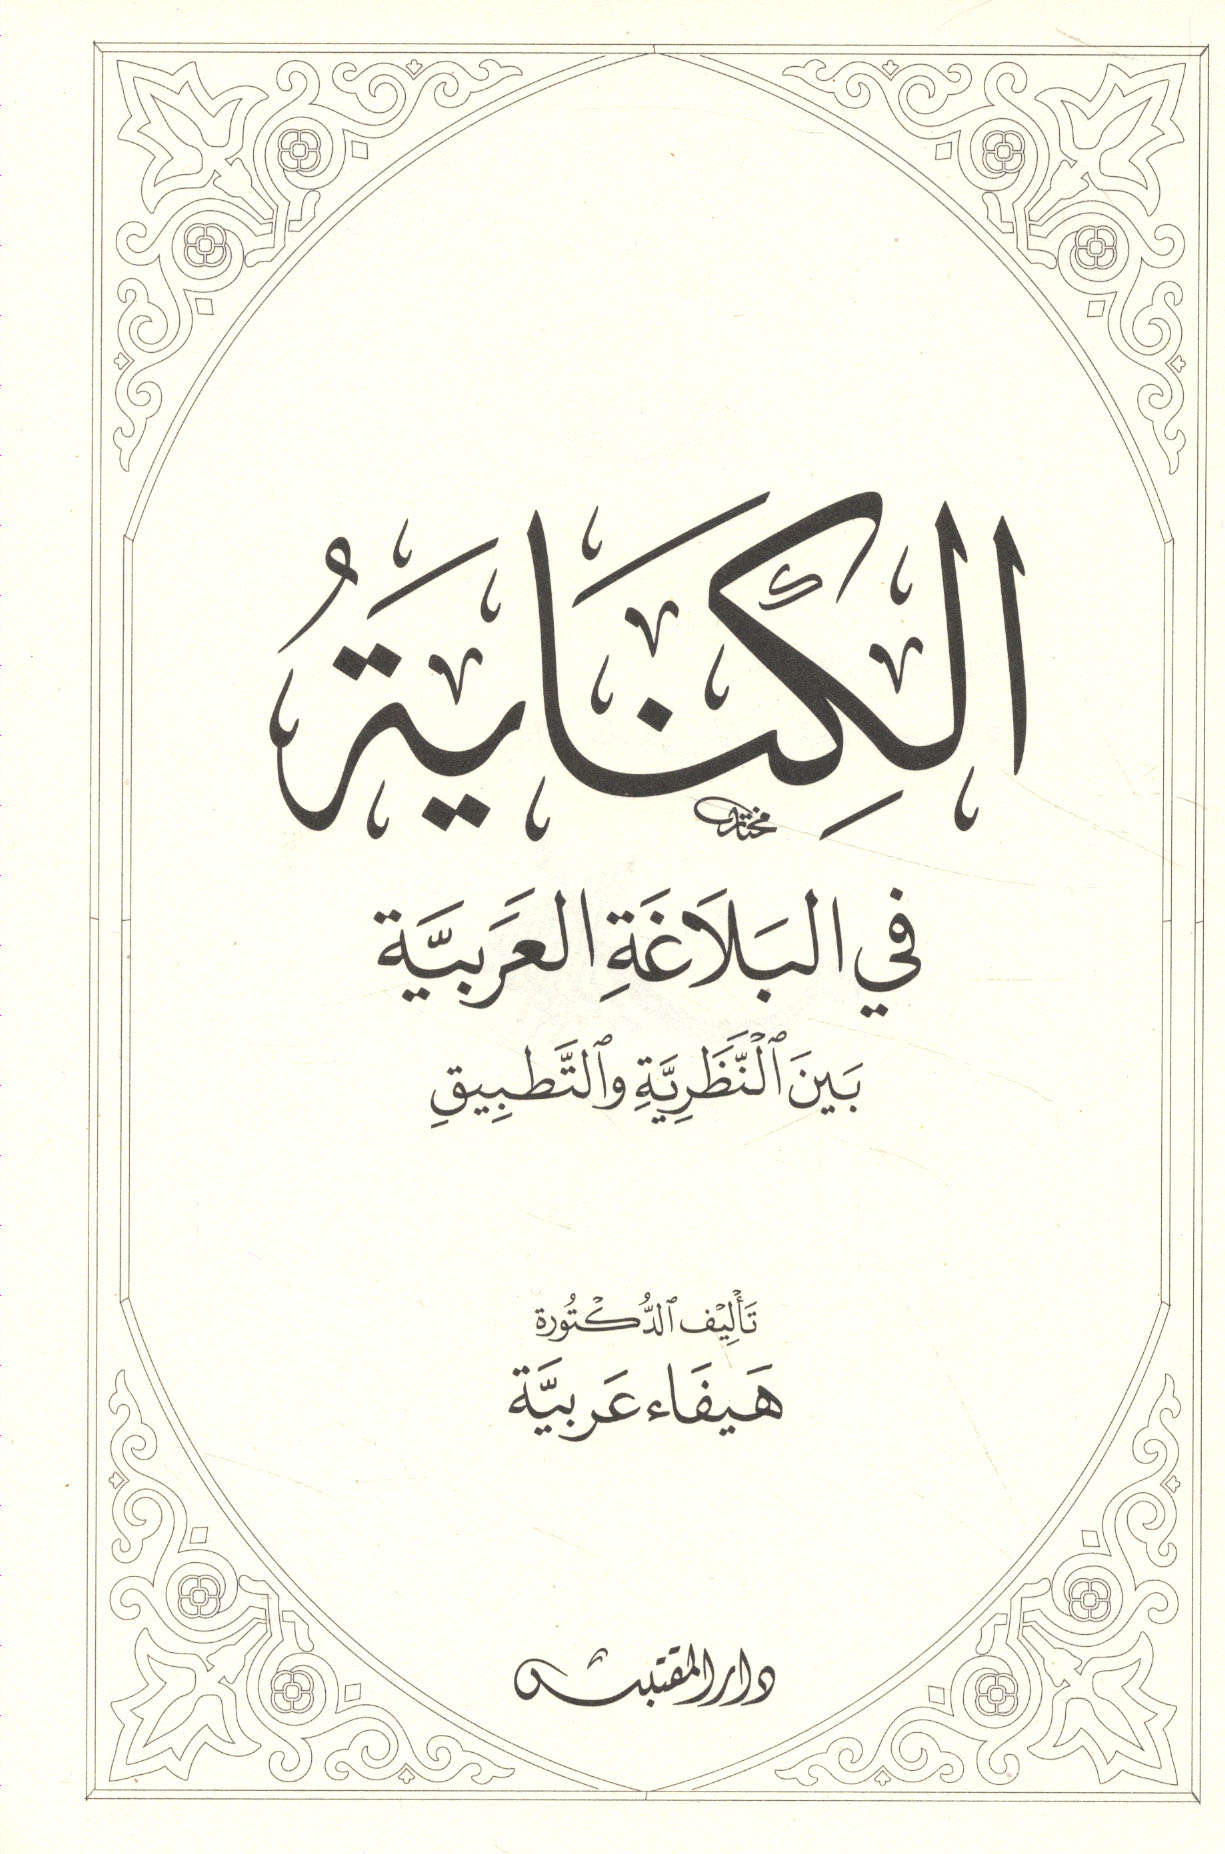 الكِنَايَةُ
مختار
في البَلَاغَةِ العَرَبيَّة
بَينَ ٱلْنَّظَرِيَّةِ وٱلتَّطبِيقِ
تَأْلِيْف ٱلدُّكْتُورة
هَيفَاء عَربيَّة
دار المقتبس